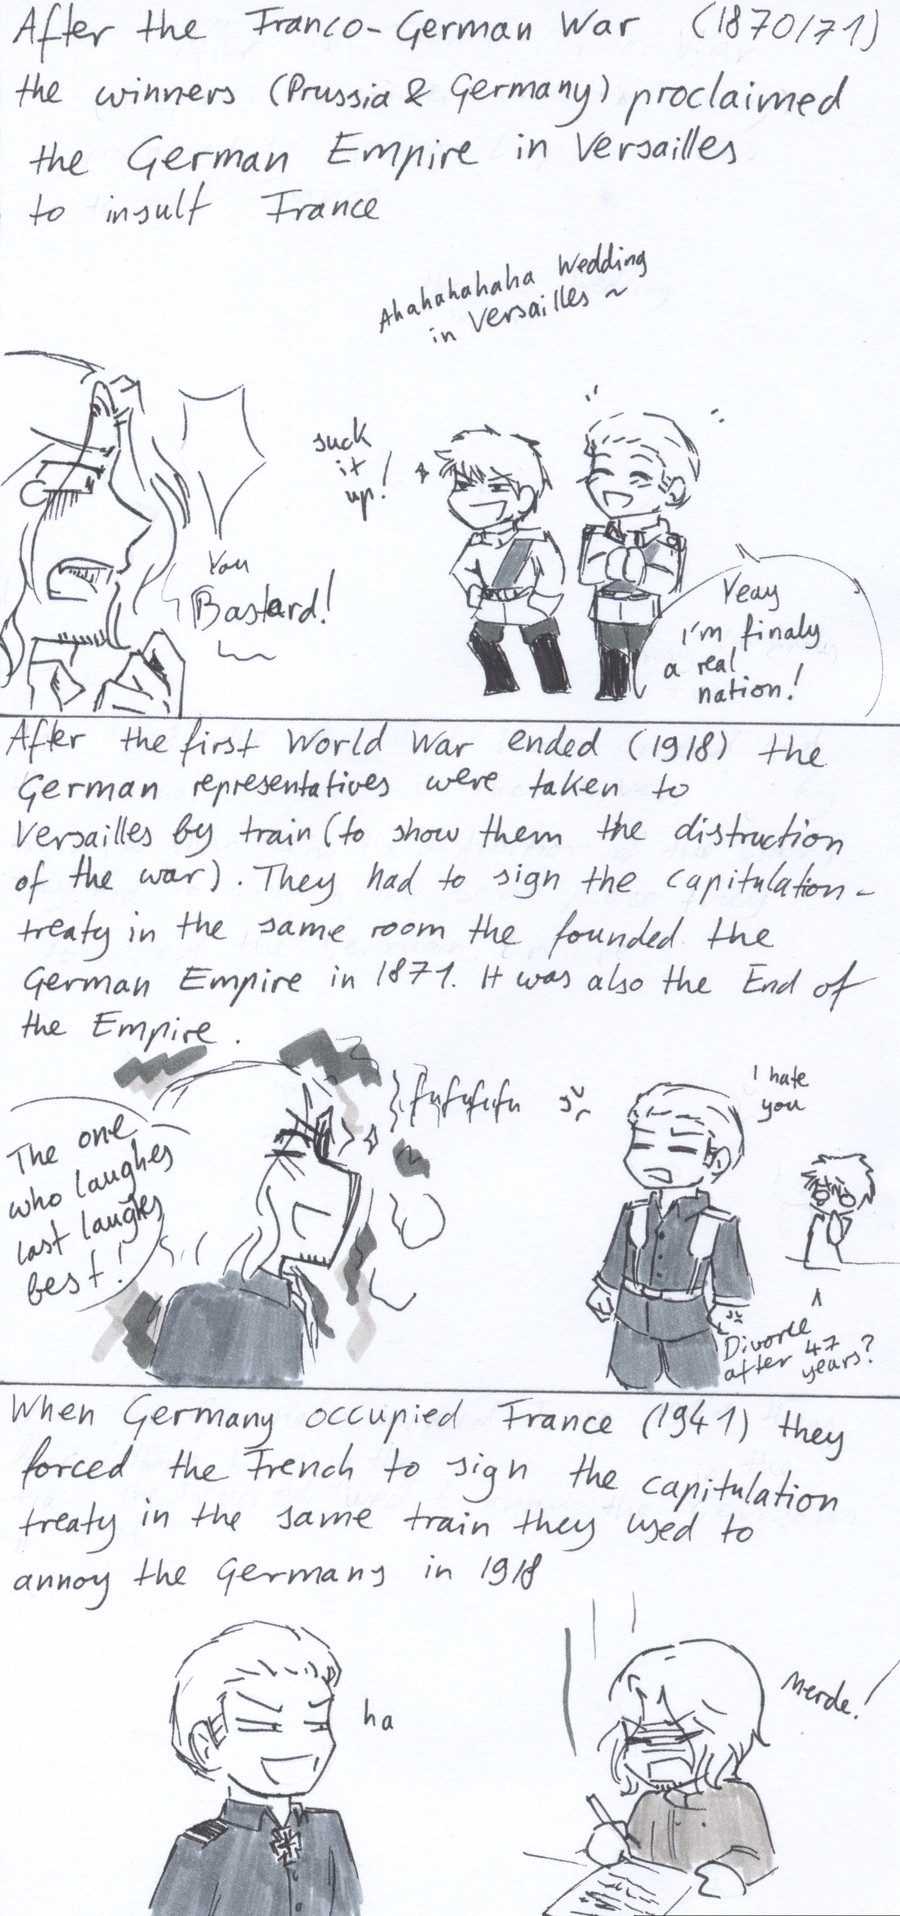 After the Franco-German War (1870/71)
the winners (Prussia & Germany) proclaimed
the German Empire in Versailles
to insult France
Ahahahahaha Wedding
in Versailles ~
suck
it
up!
You
Bastard!
Yeay
I'm finaly
a real
nation!
After the first World War ended (1918) the
German representatives were taken to
Versailles by train (to show them the distruction
of the war). They had to sign the capitulation-
treaty in the same room the founded the
German Empire in 1871. It was also the End of
the Empire.
The one
who laughes
last laughes
best!
fufufufu
I hate
you
Divorce
after 47
years?
When Germany occupied France (1941) they
forced the French to sign the capitulation
treaty in the same train they used to
annoy the Germans in 1918
ha
Merde!